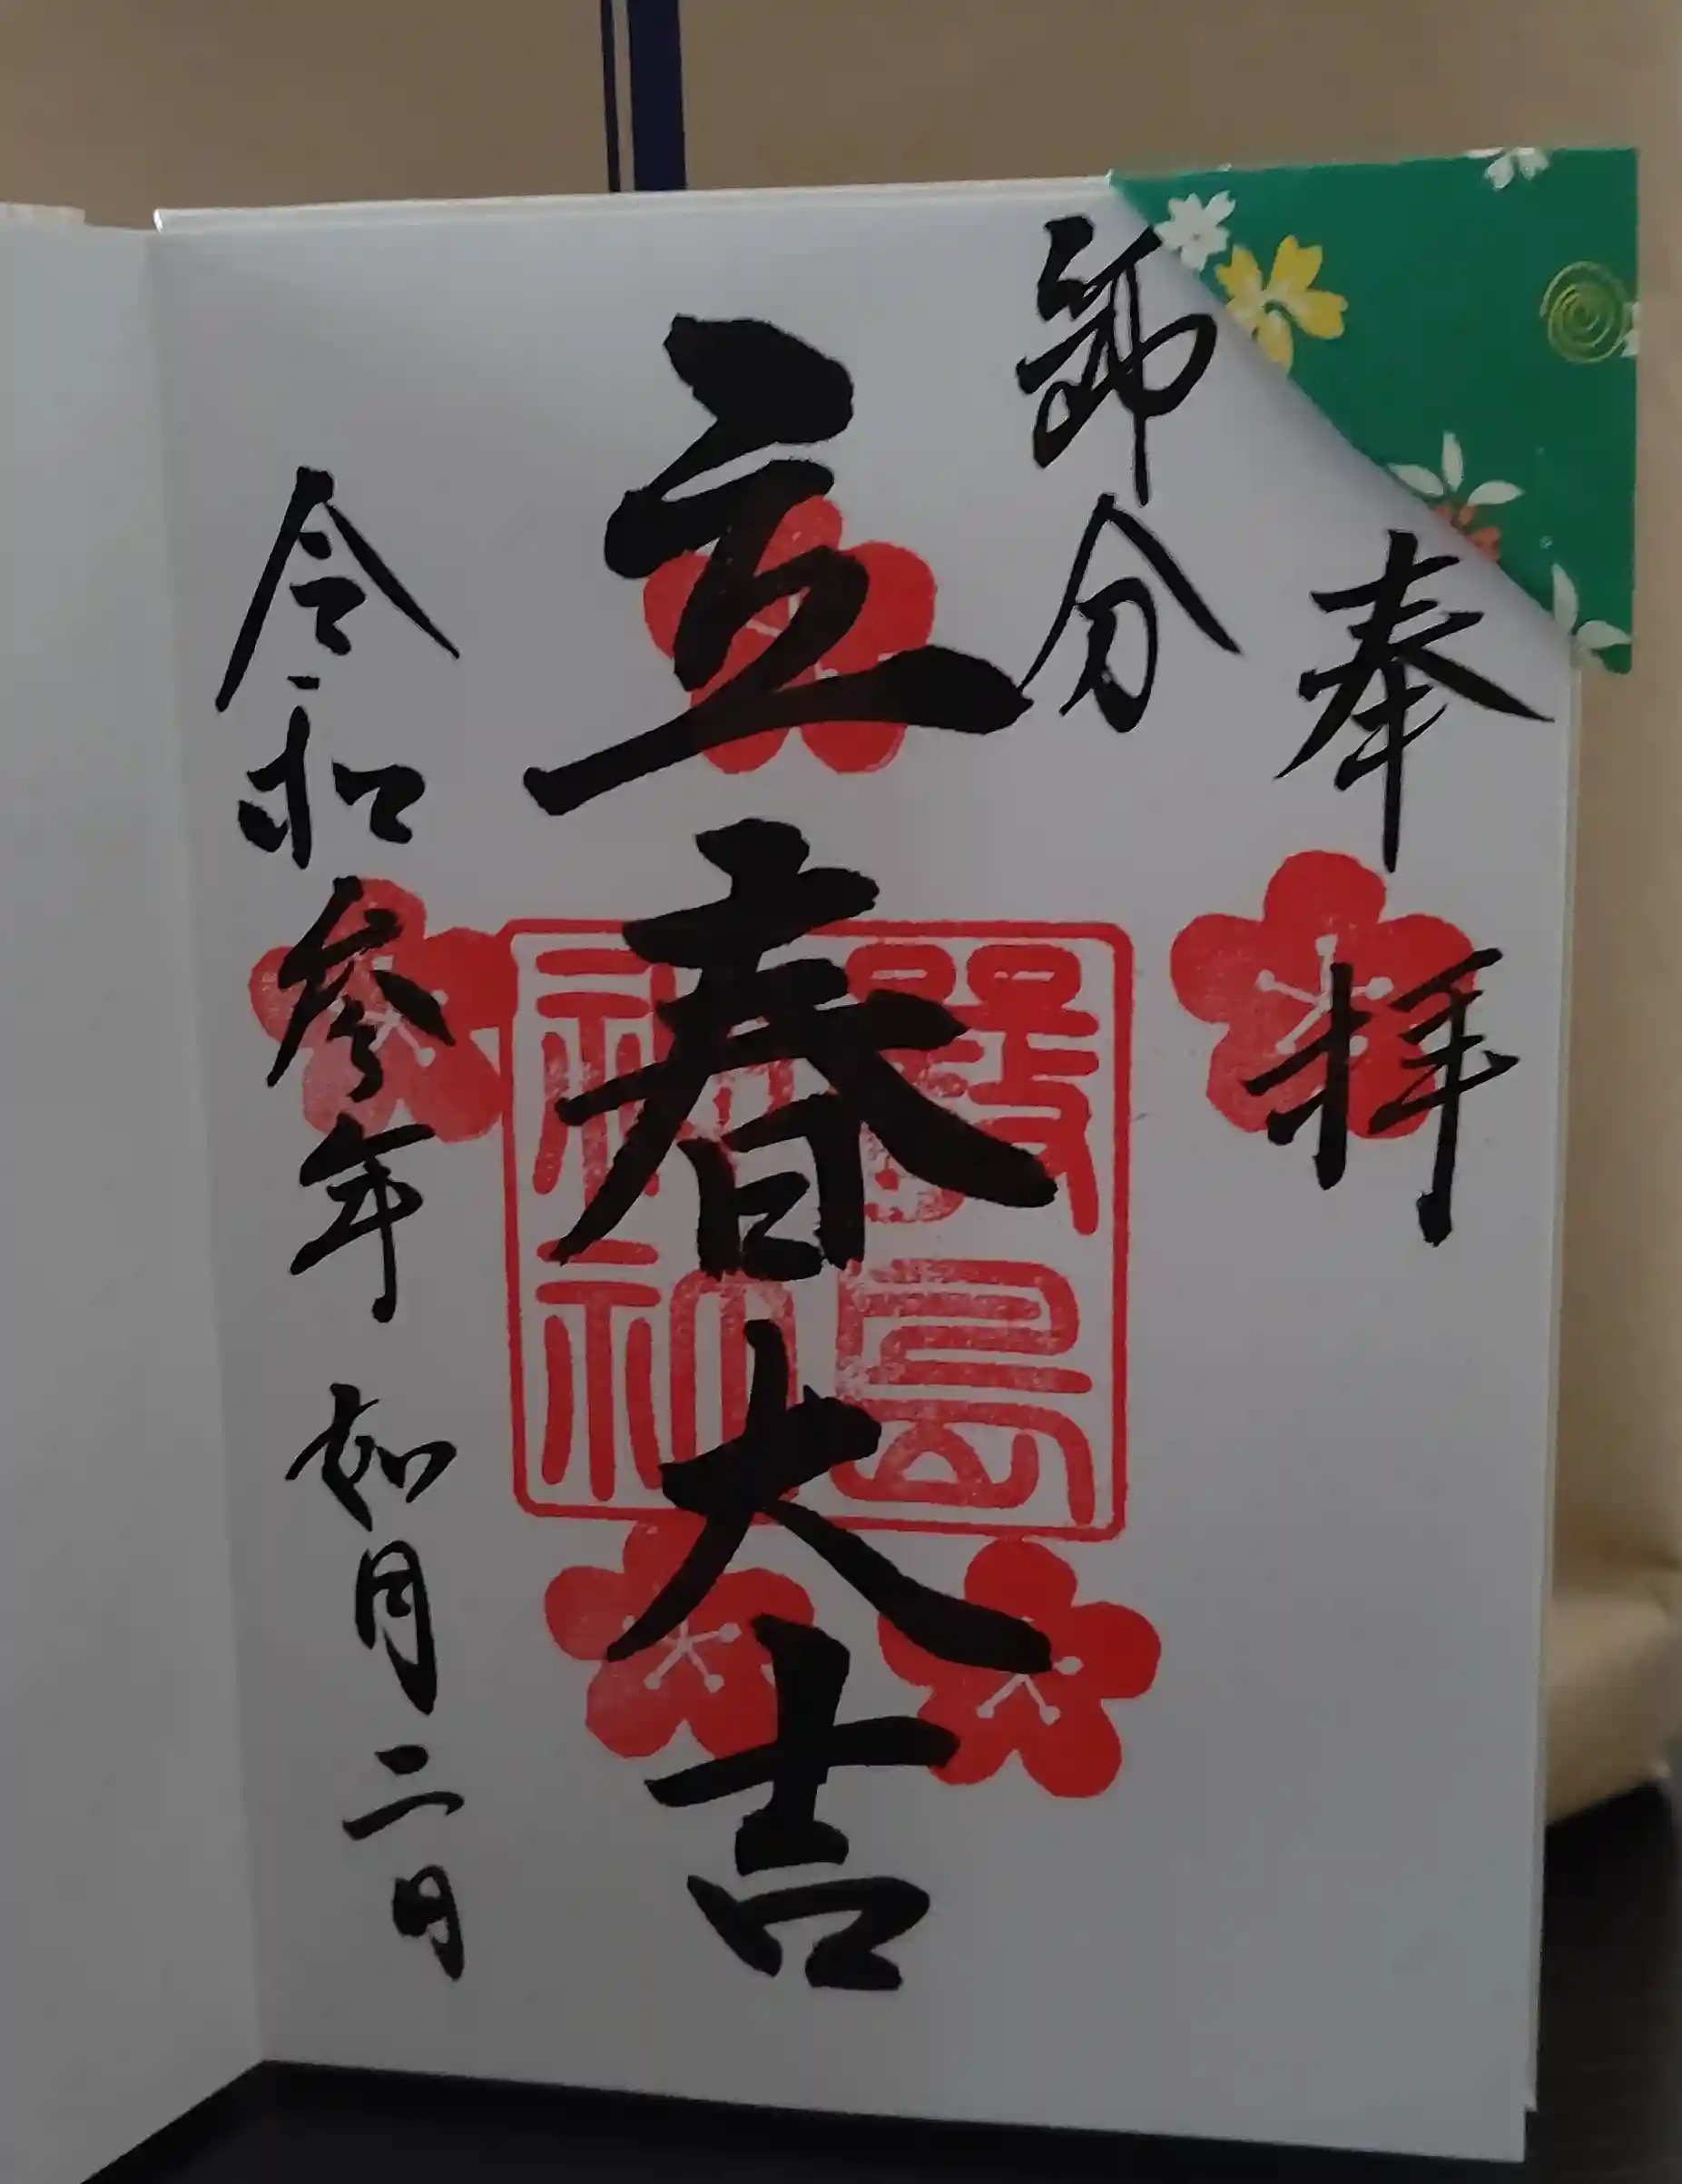 奉拝
節分
立春大吉
令和参年 如月二日
厳島神社